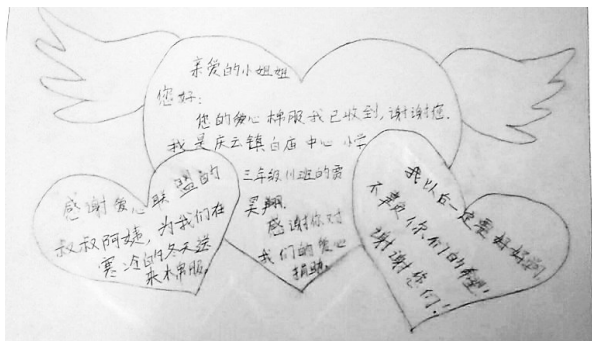 亲爱的小姐姐
您好:
您的爱心棉服我已收到,谢谢您.
我是庆云镇白庙中心小学
三年级(1)班的雷
昊翔.
感谢你对
我们的爱心
捐助.
感谢爱心联盟的
叔叔阿姨,为我们在
寒冷的冬天送
来棉服.
我以后一定要好好学习
不辜负你们的希望!
谢谢您们!